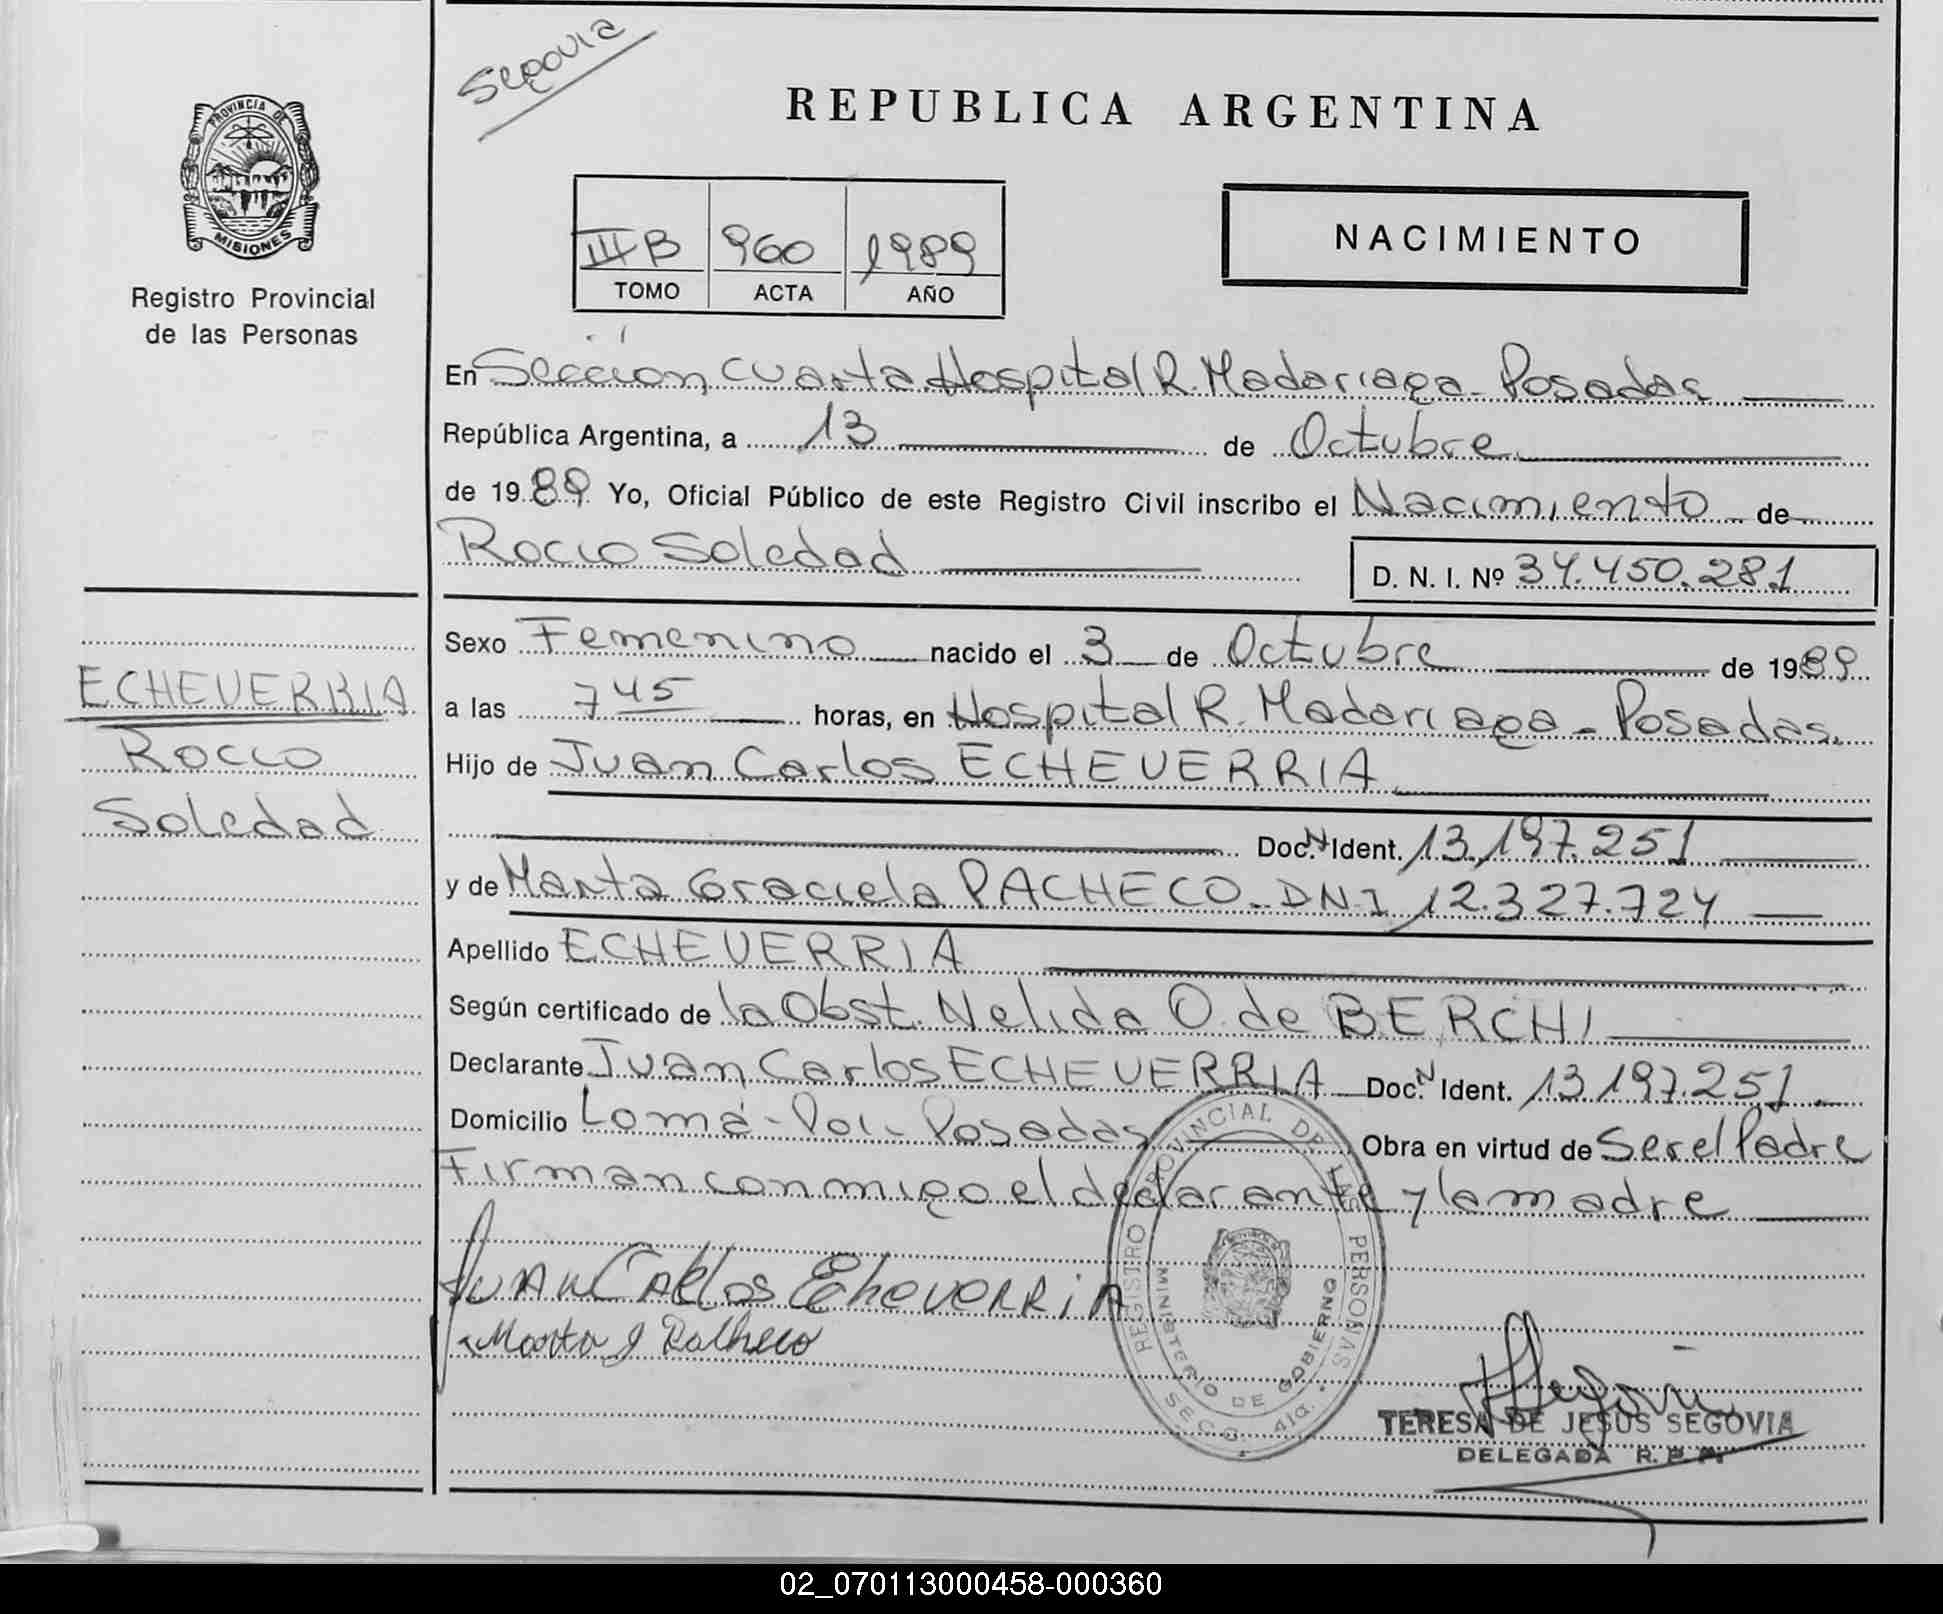 Segovia
PROVINCIA DE
MISIONES
Registro Provincial
de las Personas
REPUBLICA ARGENTINA
III B 960 1989
TOMO ACTA AÑO
NACIMIENTO
En Sección Cuarta Hospital R. Madariaga - Posadas
República Argentina, a 13 de Octubre
de 1989 Yo, Oficial Público de este Registro Civil inscribo el Nacimiento de
Rocio Soledad
D. N. I. Nº 34.450.281
ECHEVERRIA
Rocio
Soledad
Sexo Femenino nacido el 3 de Octubre de 1989
a las 7 45 horas, en Hospital R. Madariaga - Posadas.
Hijo de Juan Carlos ECHEVERRIA
Doc. N Ident. 13.197.251
y de Marta Graciela PACHECO - DNI 12.327.724
Apellido ECHEVERRIA
Según certificado de la Obst. Nelida O. de BERCHI
Declarante Juan Carlos ECHEVERRIA Doc. N Ident. 13.197.251
Domicilio Loma - Poi - Posadas Obra en virtud de Ser el Padre
Firman conmigo el declarante y la madre
Juan Carlos Echeverria
Marta G Pacheco
REGISTRO PROVINCIAL DE LAS PERSONAS
MINISTERIO DE GOBIERNO
SECC. 4ta.
TERESA DE JESUS SEGOVIA
DELEGADA R. P. P.
02_070113000458-000360